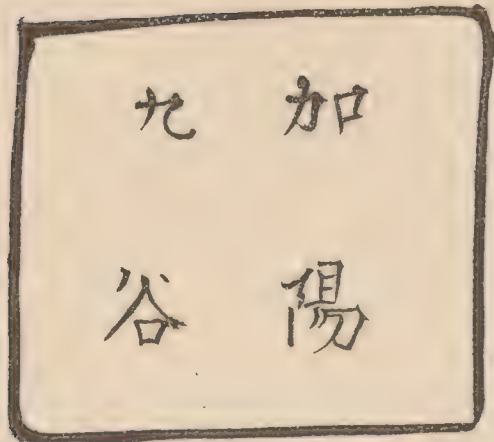 加陽
九谷